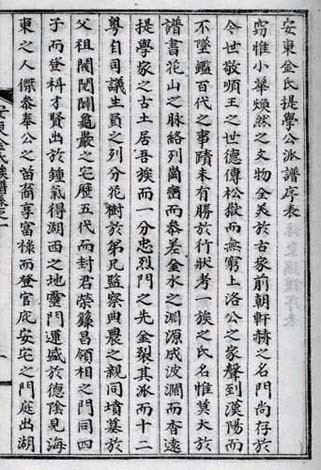 安東金氏提學公派譜序表
竊惟小華煥然之文物全美於古家前朝軒赫之名門尚存於
令世敬順王之世德傳松嶽而無窮上洛公之家聲到漢陽而
不墜鑑百代之事蹟未有勝於行狀考一族之氏名惟莫大於
譜書花山之脉絡列嶺而叅差金水之淵源成波瀾而杳遠
提學家之古土居吾族而一分忠烈門之先金裂其派而十二
粤自司議生員之列分花樹於弟兄監察典農之親同墳墓於
父祖閥閱闢龜巖之宅歷五代而封君榮籙昌領相之門同四
子而登科才賢出於鍾氣得湖西之地靈門運盛於德陰見海
東之人傑叅奉公之苗裔享富祿而登官庇安宅之門庭出湖
安東金氏族譜卷之一